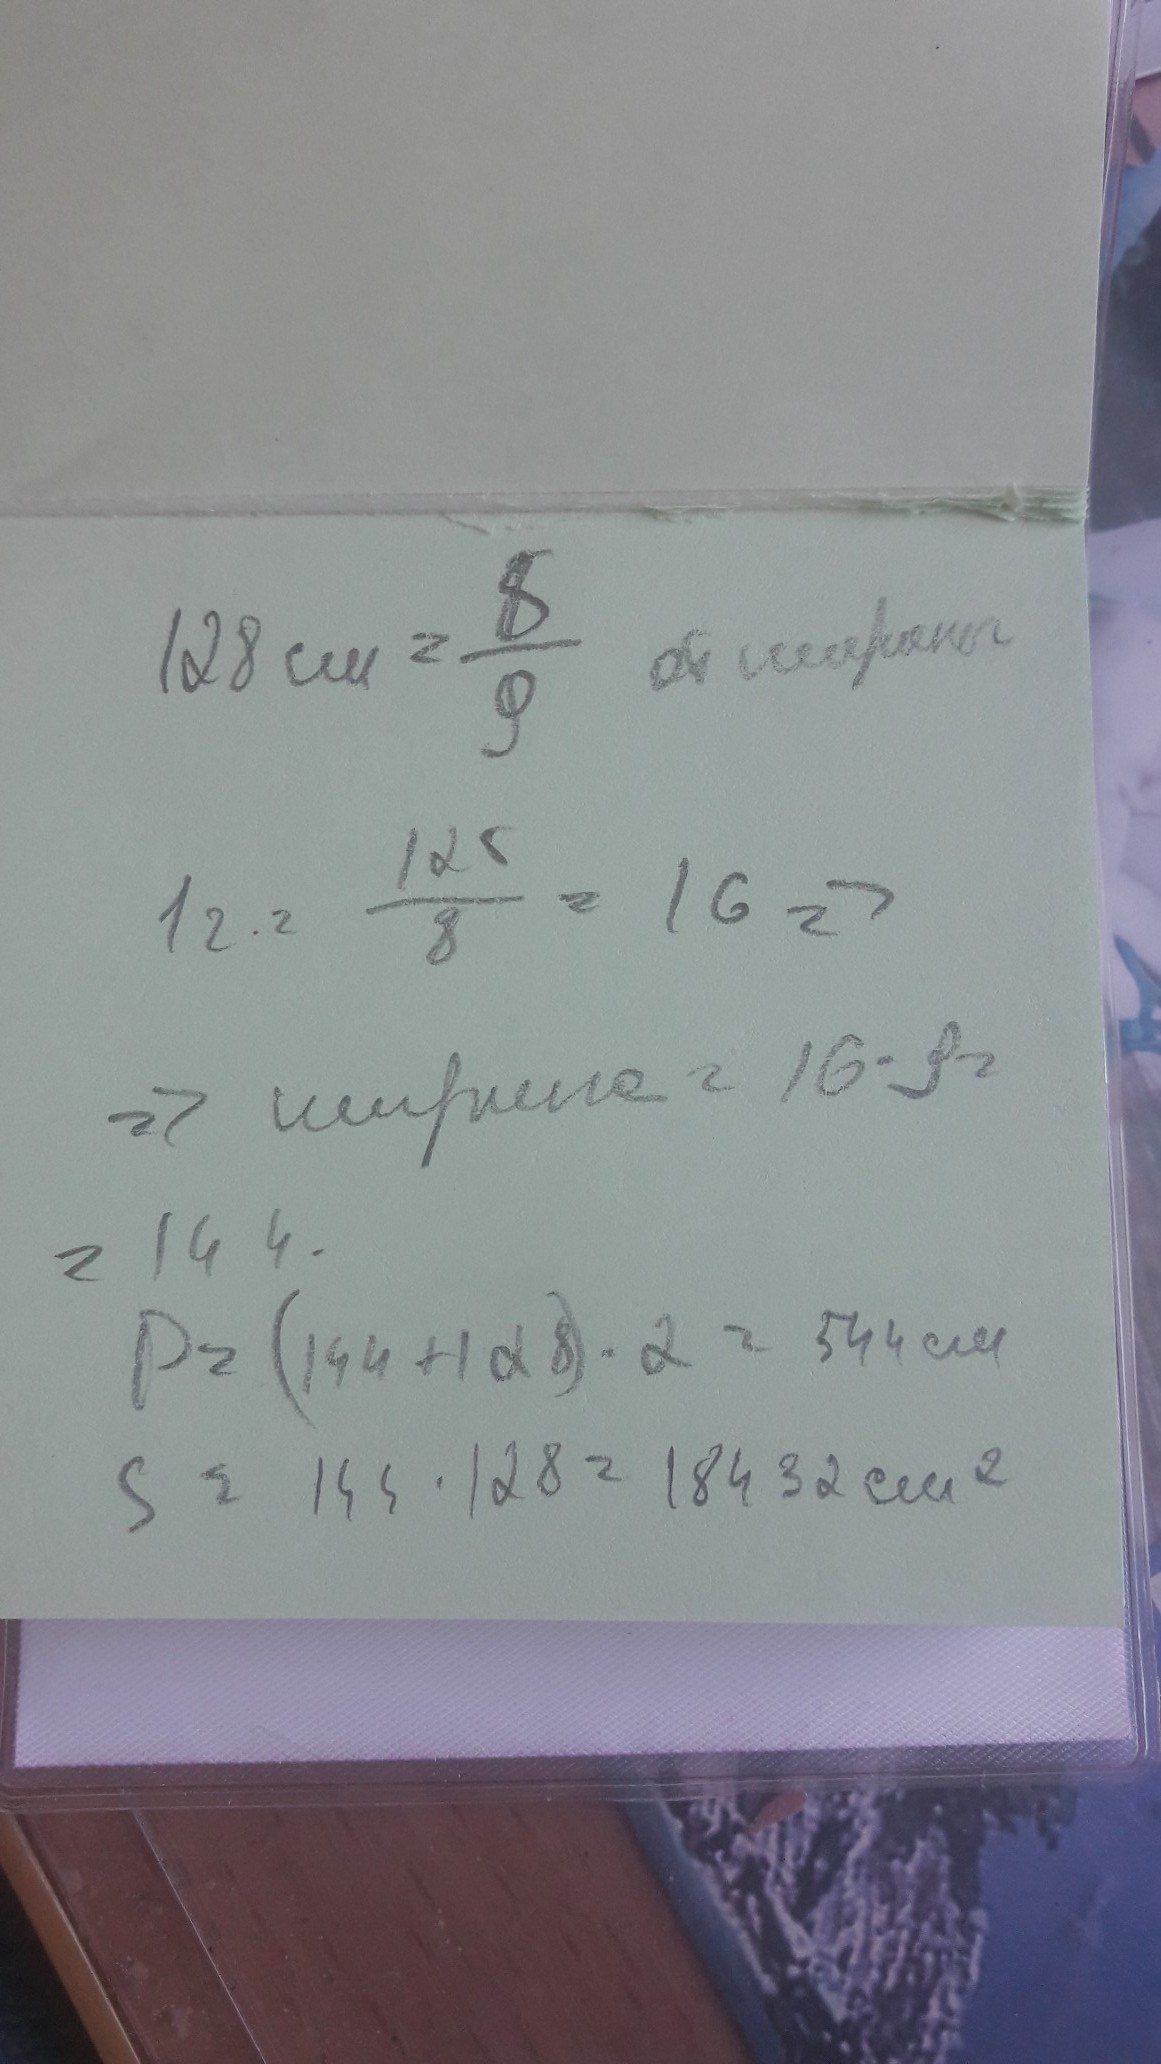 128 см = 8/9 от ширины
1 ч. = 128/8 = 16 =>
=> ширина = 16 · 9 =
= 144.
P = (144+128) · 2 = 544 см
S = 144 · 128 = 18432 см²